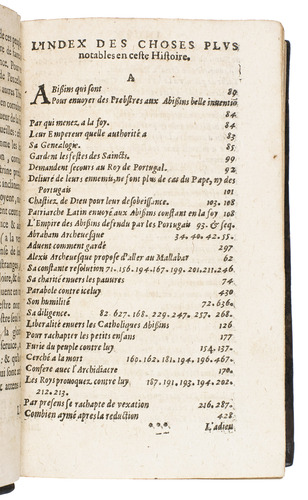 L'INDEX DES CHOSES PLVS
notables en ceste Histoire.
A
ABißins qui sont 89.
Pour enuoyer des Prebstres aux Abißins belle inuentiō
84.
Par qui menez, a la foy. 84.
Leur Empereur quelle authorité a 83.
Sa Genealogie. 85.
Gardent les festes des Saincts. 99
Demandent secours au Roy de Portugal. 92.
Deliuré de leurs ennemis, ne font plus de cas du Pape, ny des
Portugais 101
Chastiez, de Dieu pour leur desobeissance. 103. 108
Patriarche Latin enuoyé aux Abißins constant en la foy 108
L'Empire des Abißins defendu par les Portugais 93. & seq.
Abraham Archeuesque 34. 40. 42. 55.
Aduent comment gardé 297
Alexiu Archeuesque propose d'aller au Mallabar 62
Sa constante resolution 71. 156. 194. 167. 199. 201. 211. 246.
Sa charité enuers les pauures 74.
Parabole contre iceluy 430
Son humilité 72. 636.
Sa diligence. 82. 627. 168. 229. 247. 257. 268.
Liberalité enuers les Catholiques Abißins 126
Pour rachapter les petits enfans 177
Furie du peuple contre luy 154. 157.
Cerché a la mort 160. 162. 181. 194. 196. 467.
Confere auec l'Archidiacre 170.
Les Roys prouoquez, contre luy 187. 191. 193. 194. 202.
212. 213.
Par presens se rachapte de vexation 216. 287.
Combien aymé apres la reduction 428
*** L'adieu